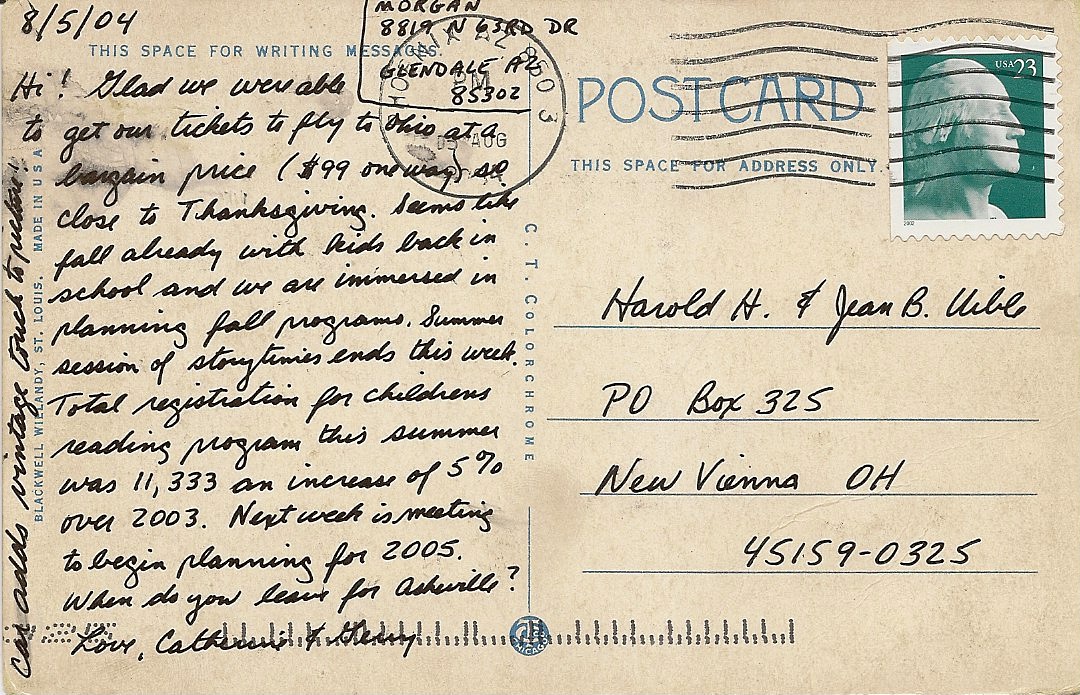 8/5/04
MORGAN
8819 N 63RD DR
GLENDALE AZ
85302
THIS SPACE FOR WRITING MESSAGES.
Hi! Glad we were able
to get our tickets to fly to Ohio at a
bargain price ($99 one way) so
close to Thanksgiving. Seems like
fall already with kids back in
school and we are immersed in
planning fall programs. Summer
session of storytimes ends this week.
Total registration for childrens
reading program this summer
was 11,333 an increase of 5%
over 2003. Next week is meeting
to begin planning for 2005.
When do you leave for Asheville?
Love, Catherine & Gerry
Car adds vintage touch to picture!
BLACKWELL WIELANDY, ST. LOUIS. MADE IN U S A
C. T. COLORCHROME
PM
05 AUG
POST CARD
THIS SPACE FOR ADDRESS ONLY.
USA 23
2002
Harold H. & Jean B. Uible
PO Box 325
New Vienna OH
45159-0325
CHICAGO